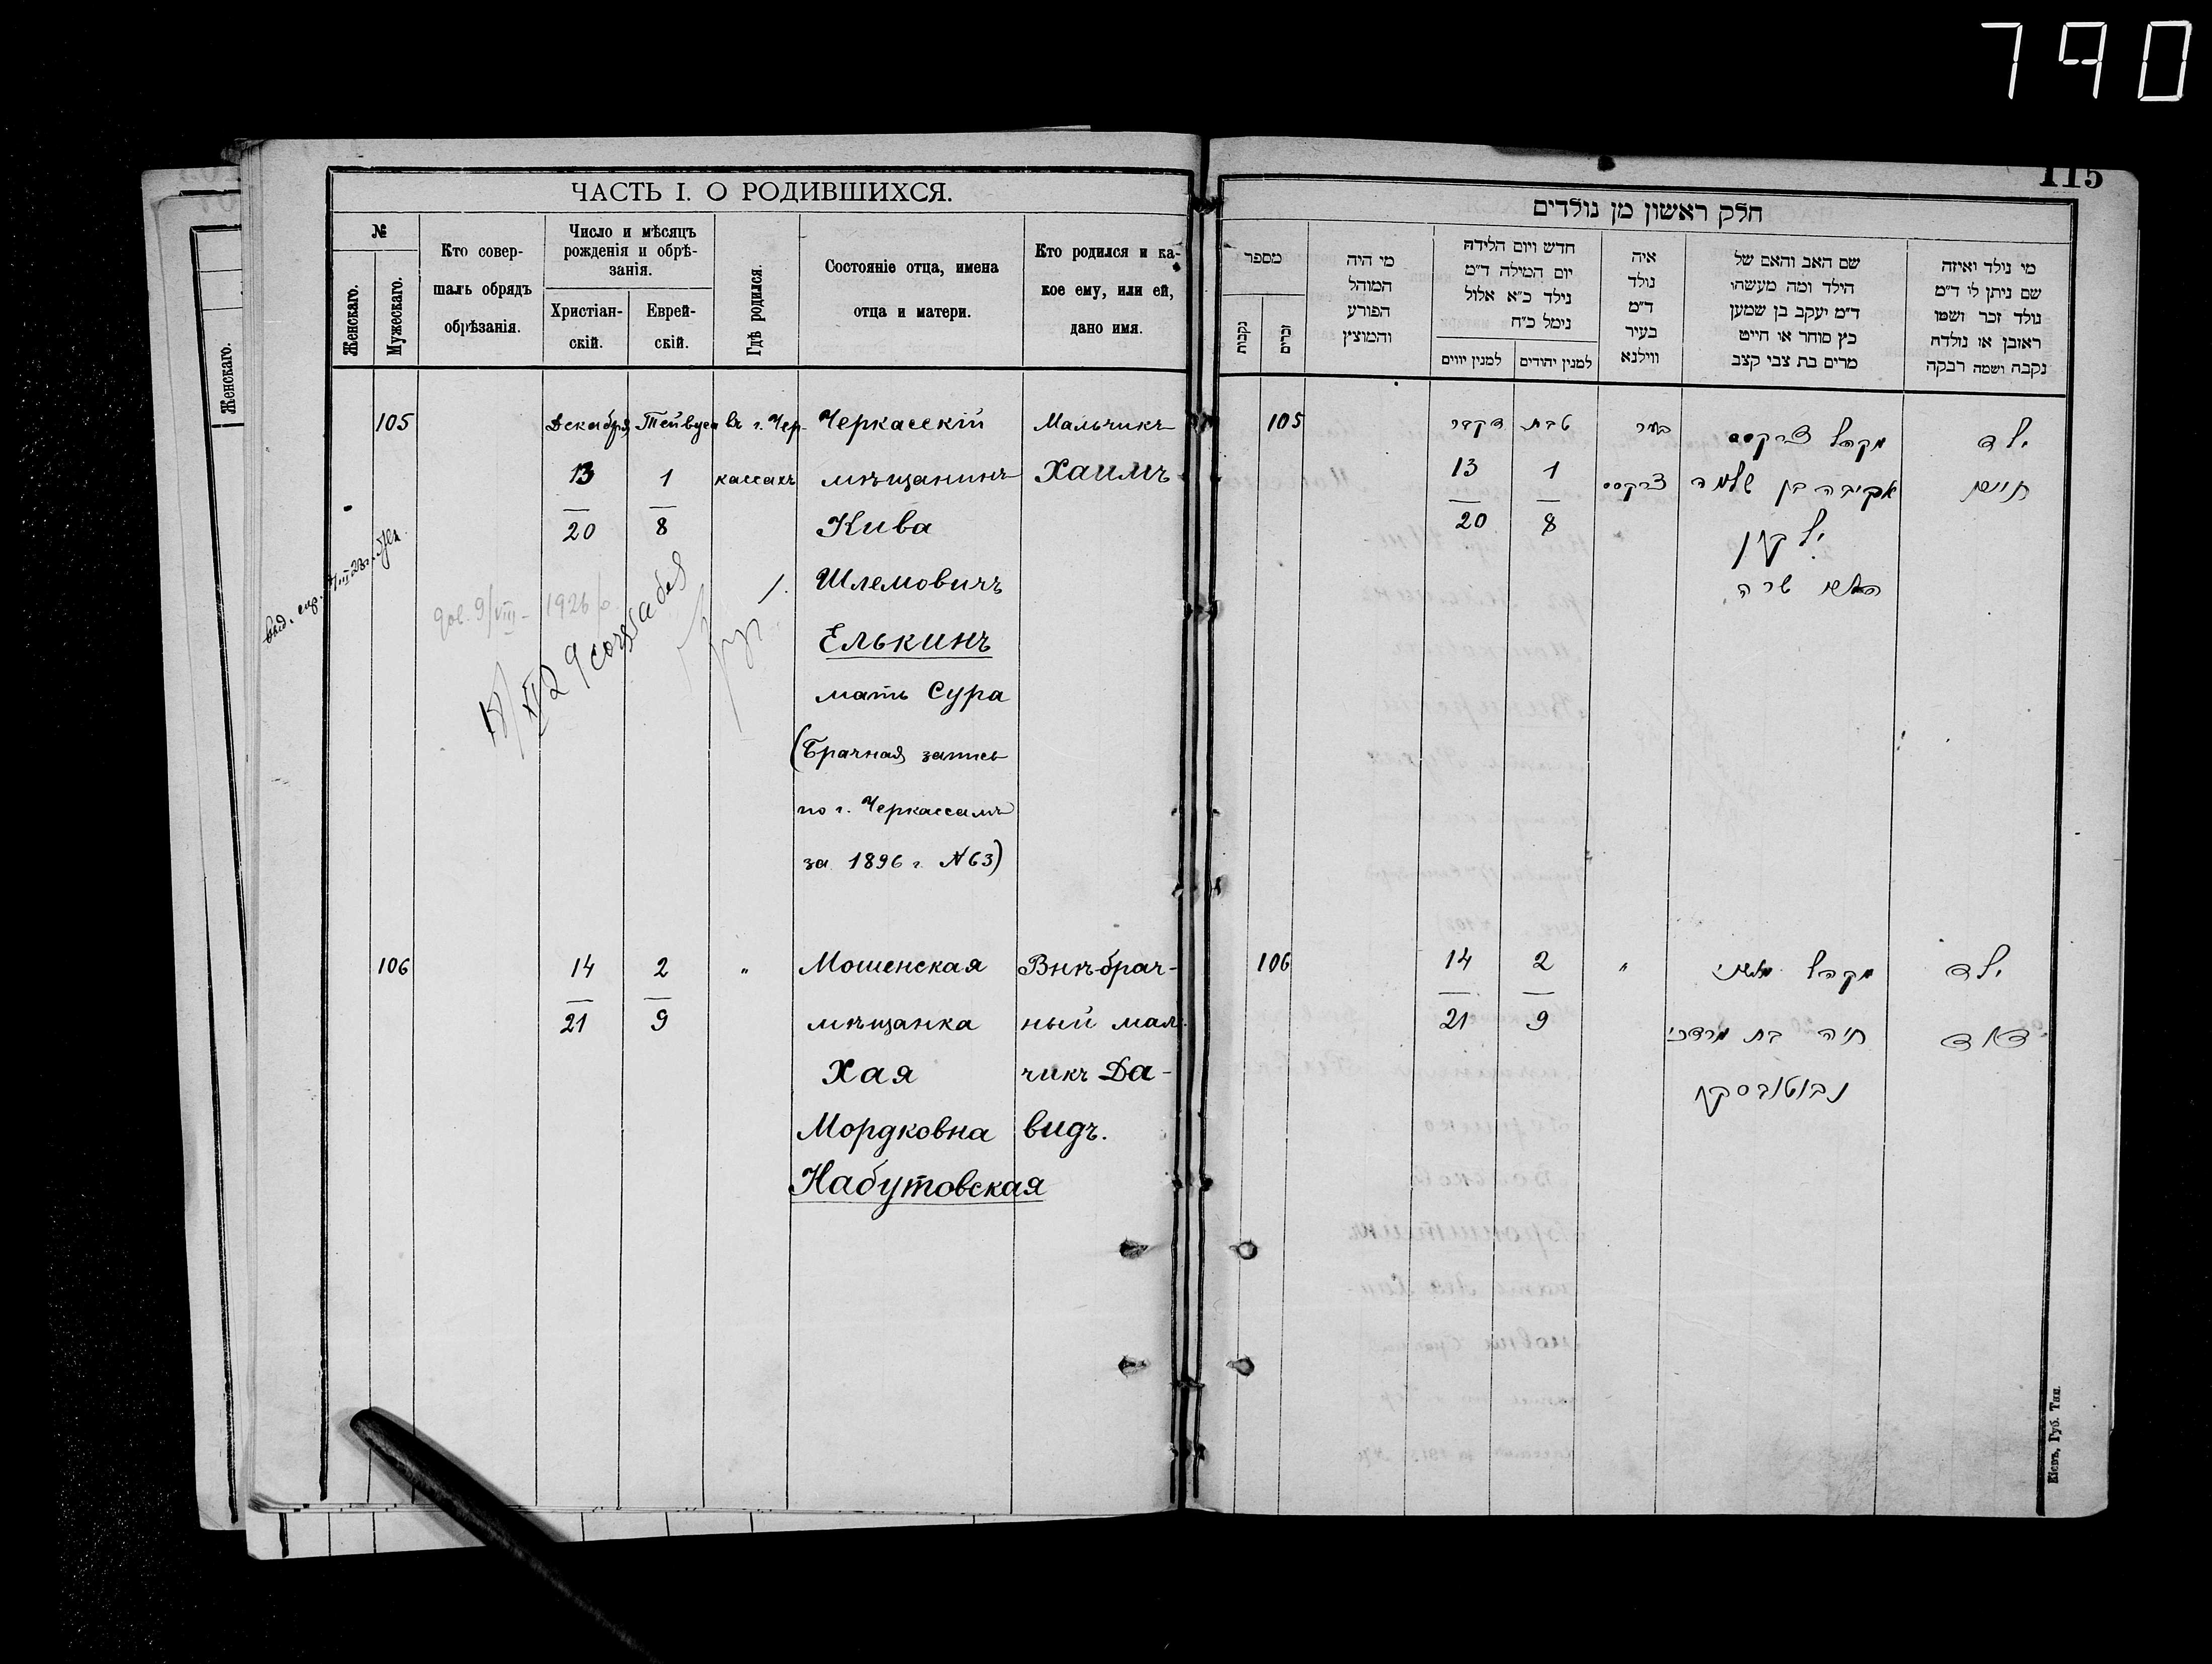 790
ЧАСТЬ I. О РОДИВШИХСЯ.
№
Женскаго.
Мужескаго.
Кто совер-
шалъ обрядъ
обрѣзанія.
Число и мѣсяцъ
рожденія и обрѣ-
занія.
Христіан-
скій.
Еврей-
скій.
Гдѣ родился.
Состояніе отца, имена
отца и матери.
Кто родился и ка-
кое ему, или ей,
дано имя.
Женскаго.
105 Декабря Тейвуса въ г. Чер- Черкасскій Мальчикъ
13 1 кассахъ мѣщанинъ Хаимъ
20 8 Кива
Шлемовичъ
Елькинъ
мать Сура
(Брачная запись
по г. Черкассамъ
за 1896 г. №63)
106 14 2 " Мошенская Внѣбрач-
21 9 мѣщанка ный маль
Хая чикъ Да-
Мордковна видъ.
Набутовская
115
חלק ראשון מן נולדים
מספר
נקבות
זכרים
מי היה
המוהל
הפורע
והמוצץ
חדש ויום הלידה
יום המילה ד״מ
נילד כ״א אלול
נימל כ״ח
למנין יווים
למנין יהודים
איה
נולד
ד״מ
בעיר
ווילנא
שם האב והאם של
הילד ומה מעשהו
ד״מ יעקב בן שמען
כץ סוחר או חייט
מרים בת צבי קצב
מי נולד ואיזה
שם ניתן לו ד״מ
נולד זכר ושמו
ראובן או נולדה
נקבה ושמה רבקה
105 דקבר טבת בעיר מקהל צרקסס ילד
13 1 צרקסס עקיבה בן שלמה חיים
20 8 ילקין
האם שרה
106 14 2 " מקהל ילד
21 9 חיה בת מרדכי דוד
נבוטובסקי
Кіевъ, Губ. Тип.